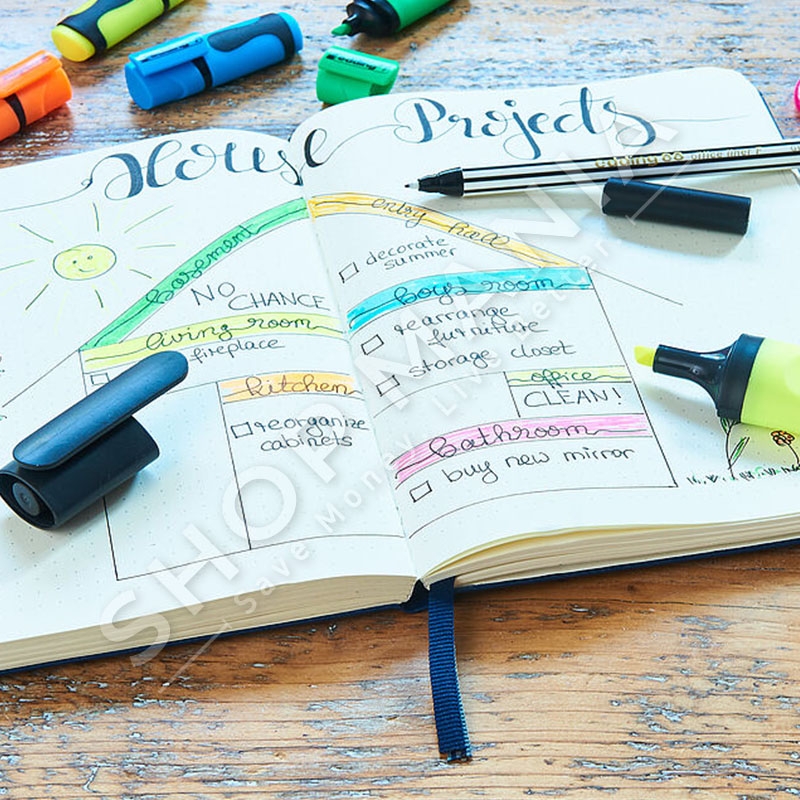 House Projects
basement
NO
CHANCE
living room
fireplace
kitchen
reorganize
cabinets
entry hall
decorate
summer
boys room
rearrange
furniture
storage closet
office
CLEAN!
bathroom
buy new mirror
edding 88 office liner F
edding
SHOP MANIA
Save Money. Live Better